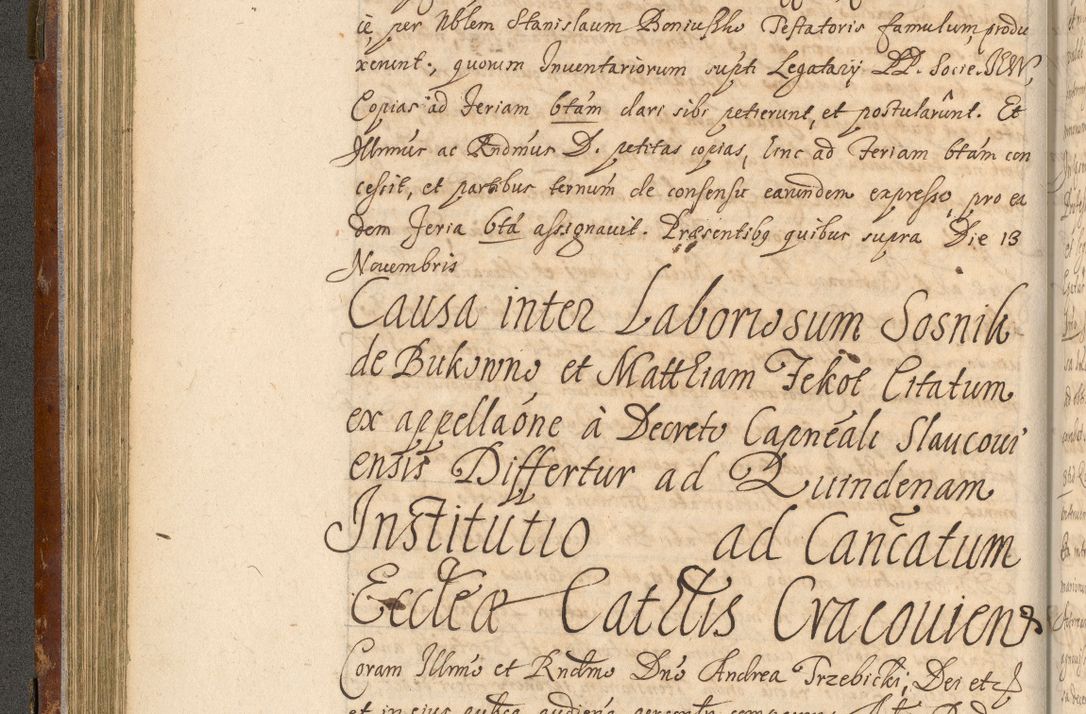 ie, per Nblem Stanislaum Boniusko Testatoris famulum, produ
xerunt, quorum Inventariorum supti Legatarij DD. Socie. IESV,
Copias ad feriam btam dari sibi petierunt, et postularunt. Et
Illmus ac Rndmus D. petitas copias, hinc ad Feriam btam con
cessit, et partibus ternum de consensu earundem expresso, pro ea
dem feria bta assignavit. Præsentibq quibus supra Die 13
Novembris
Causa inter Laboriosum Sosnik
de Bukowno et Matthiam Fekot Citatum
ex appellaone à Decreto Capneali Slaucoui
ensis Differtur ad Quindenam
Institutio ad Cancatum
Ecclea Cathlis Cracouiens
Coram Illmo et Rndmo Dno Andrea Trzebicki, Dei etc
et in eius pubca audiena personlr comparens